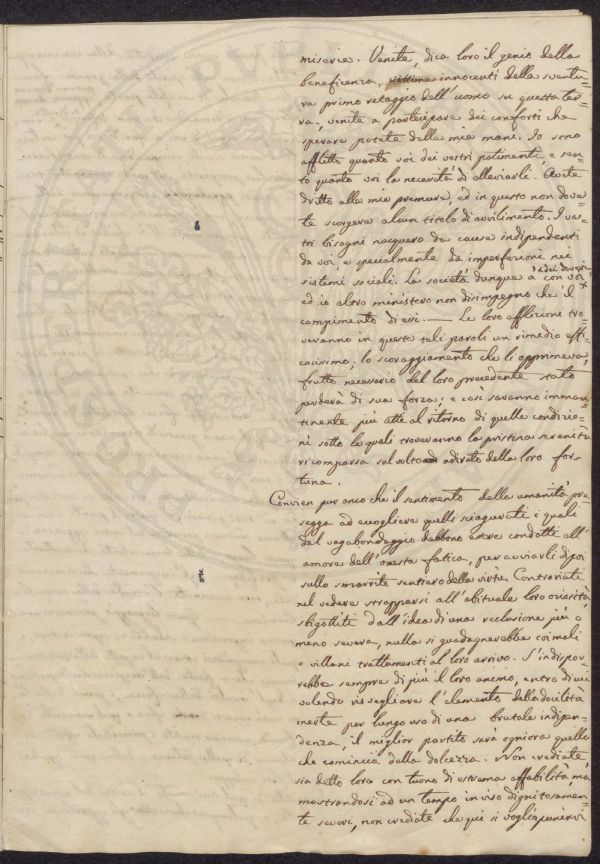 miserie. Venite, dica loro il genio della
beneficenza, vittime innocenti della sventu=
ra primo retaggio dell'uomo su questa ter=
ra, venite a partecipare dei conforti che
sperare potete dalle mie mani. Io sono
afflitto quanto voi dei vostri patimenti, e sen=
to quanto voi la necessità di alleviarli. Avete
dritto alle mie premure, ed in questo non dove=
te scorgere alcun titolo di avvilimento. I vos=
tri bisogni nacquero da cause indipendenti
da voi, e specialmente da imperfezioni nei
sistemi sociali. La società dunque à con voi dei doveri
ed io al loro ministero non disimpegno che il
compimento di essi. — Le loro afflizioni tro=
veranno in queste tali parole un rimedio effi=
cacissimo, lo scoraggiamento che li opprimeva,
frutto necessario del loro precedente stato
perderà di sua forza; e così saranno imman=
tinente più atte al ritorno di quelle condizio=
ni sotto le quali troveranno la pristina serenità
ricomparsa sul volto adirato della loro for=
tuna.
Convien pur anco che il sentimento della umanità pre
segga ad accogliere quelli sciagurati i quali
dal vagabondaggio debbono essere condotti all'
amore dell'onesta fatica, per avviarli di poi
sullo smarrito sentiero della virtù. Contrariati
nel vedere strapparsi all'abituale loro oziosità,
sbigottiti dall'idea di una reclusione più o
meno severa, nulla si guadagnerebbe coi mali
e villani trattamenti al loro arrivo. S'indispor=
rebbe sempre di più il loro animo, entro di cui
volendo risvegliare l'elemento della docilità
inerte per lungo uso di una brutale indipen=
denza, il miglior partito sarà ognora quello
che comincia dalla dolcezza. Non crediate,
sia detto loro con tuono di estrema affabilità, ma
mostrandosi ad un tempo in viso dignitosamen=
te severi, non crediate che qui si voglia punirvi